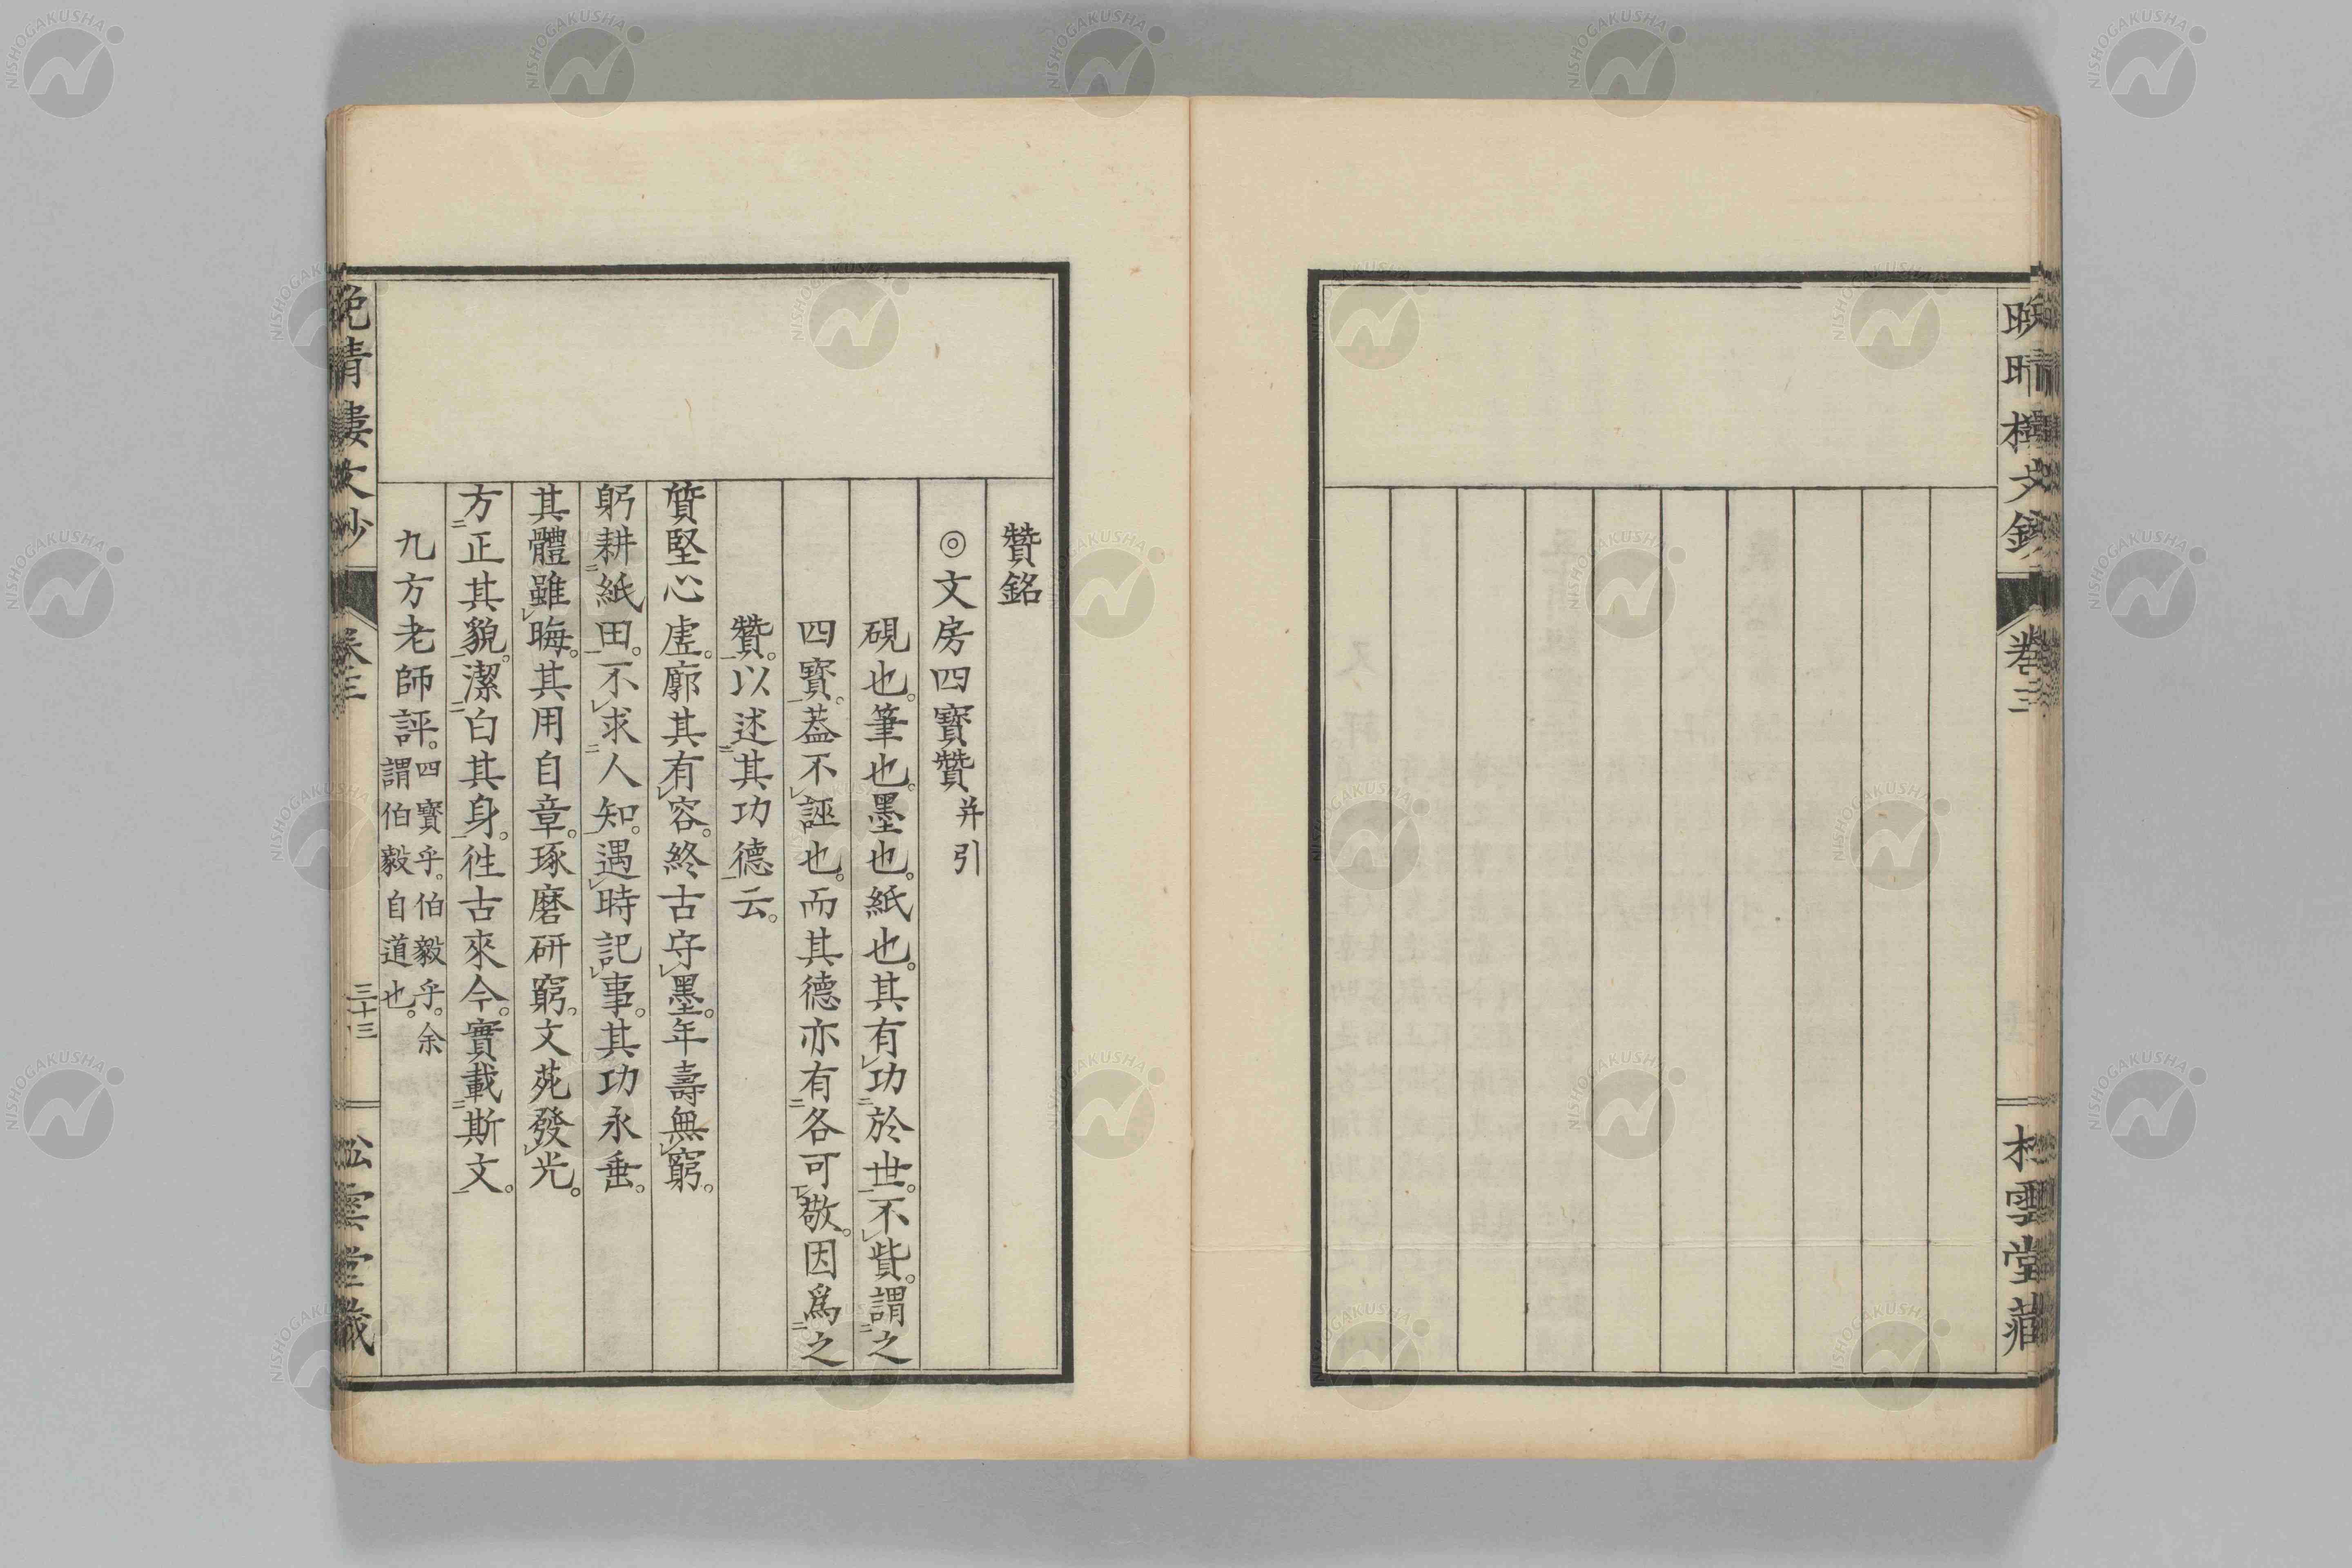 晩晴樓文鈔
卷三
松雲堂藏
贊銘
◎文房四寶贊 并引
硯也。筆也。墨也。紙也。其有功於世。不貲。謂之
四寶。葢不誣也。而其德亦有各可敬。因爲之
贊。以述其功德云。
質堅心虛。廓其有容。終古守墨。年壽無窮。
躬耕紙田。不求人知。遇時記事。其功永垂。
其體雖晦。其用自章。琢磨研窮。文苑發光。
方正其貌。潔白其身。徃古來今。實載斯文。
九方老師評。四寶乎。伯毅乎。余
謂伯毅自道也。
晩晴樓文鈔
卷三
三十三
松雲堂藏
NISHOGAKUSHA